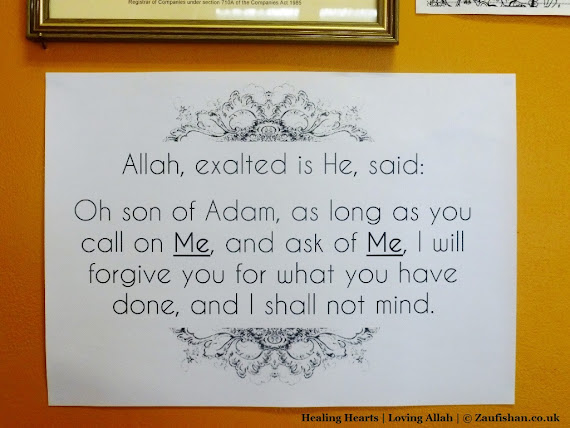 Registrar of Companies under section 710A of the Companies Act 1985
Allah, exalted is He, said:
Oh son of Adam, as long as you
call on Me, and ask of Me, I will
forgive you for what you have
done, and I shall not mind.
Healing Hearts | Loving Allah | © Zaufishan.co.uk